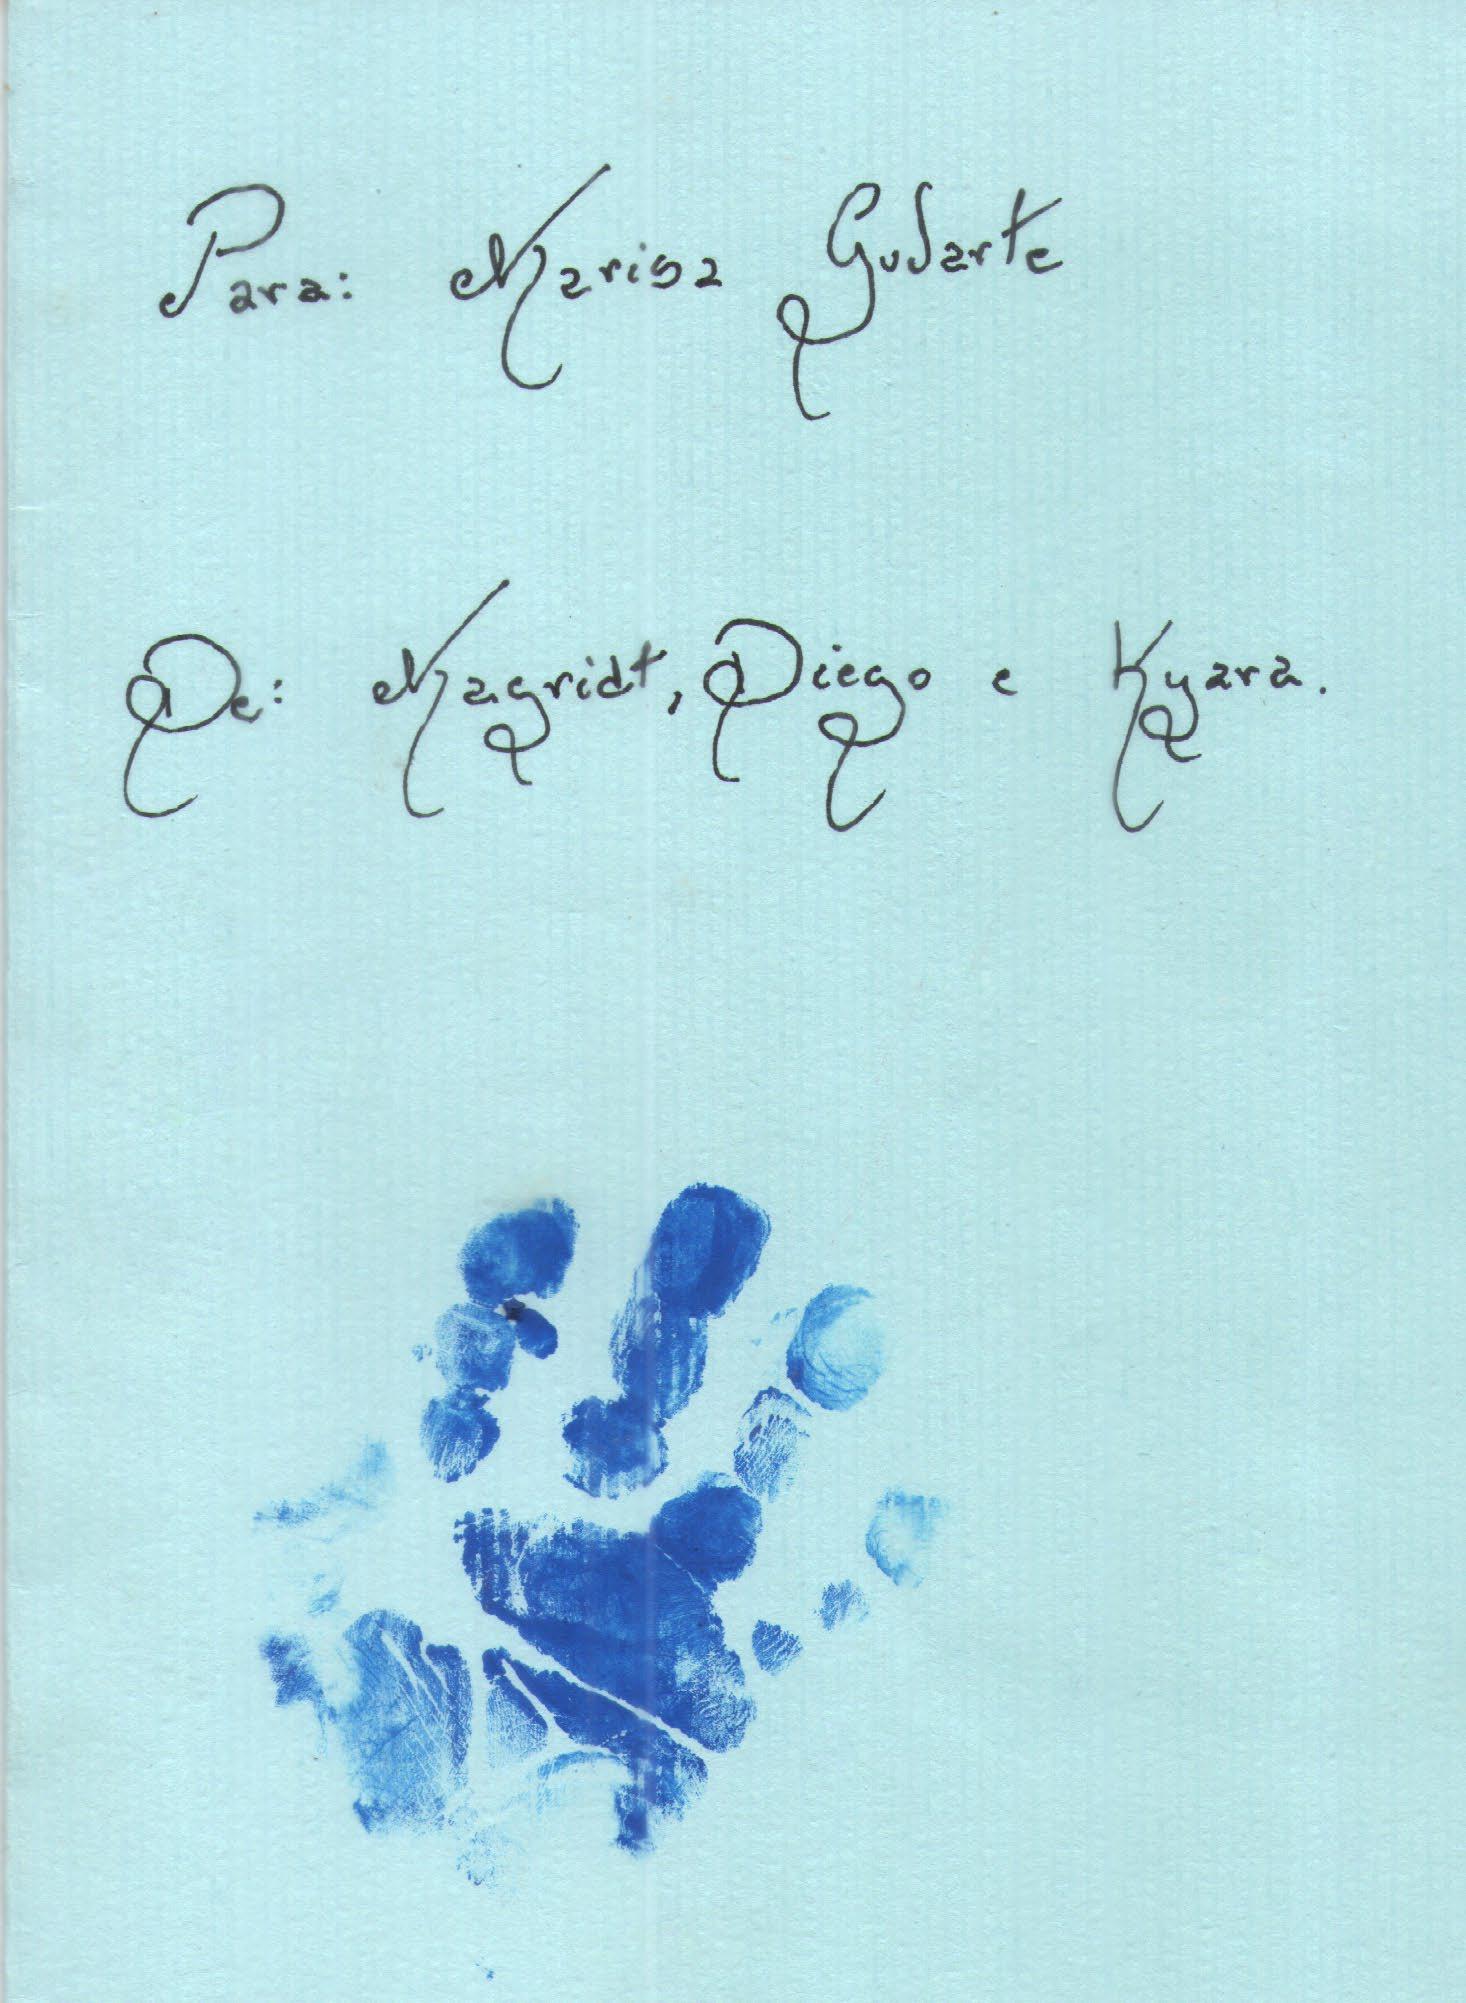 Para: Marisa Gudarte
De: Magridt, Diego e Kyara.